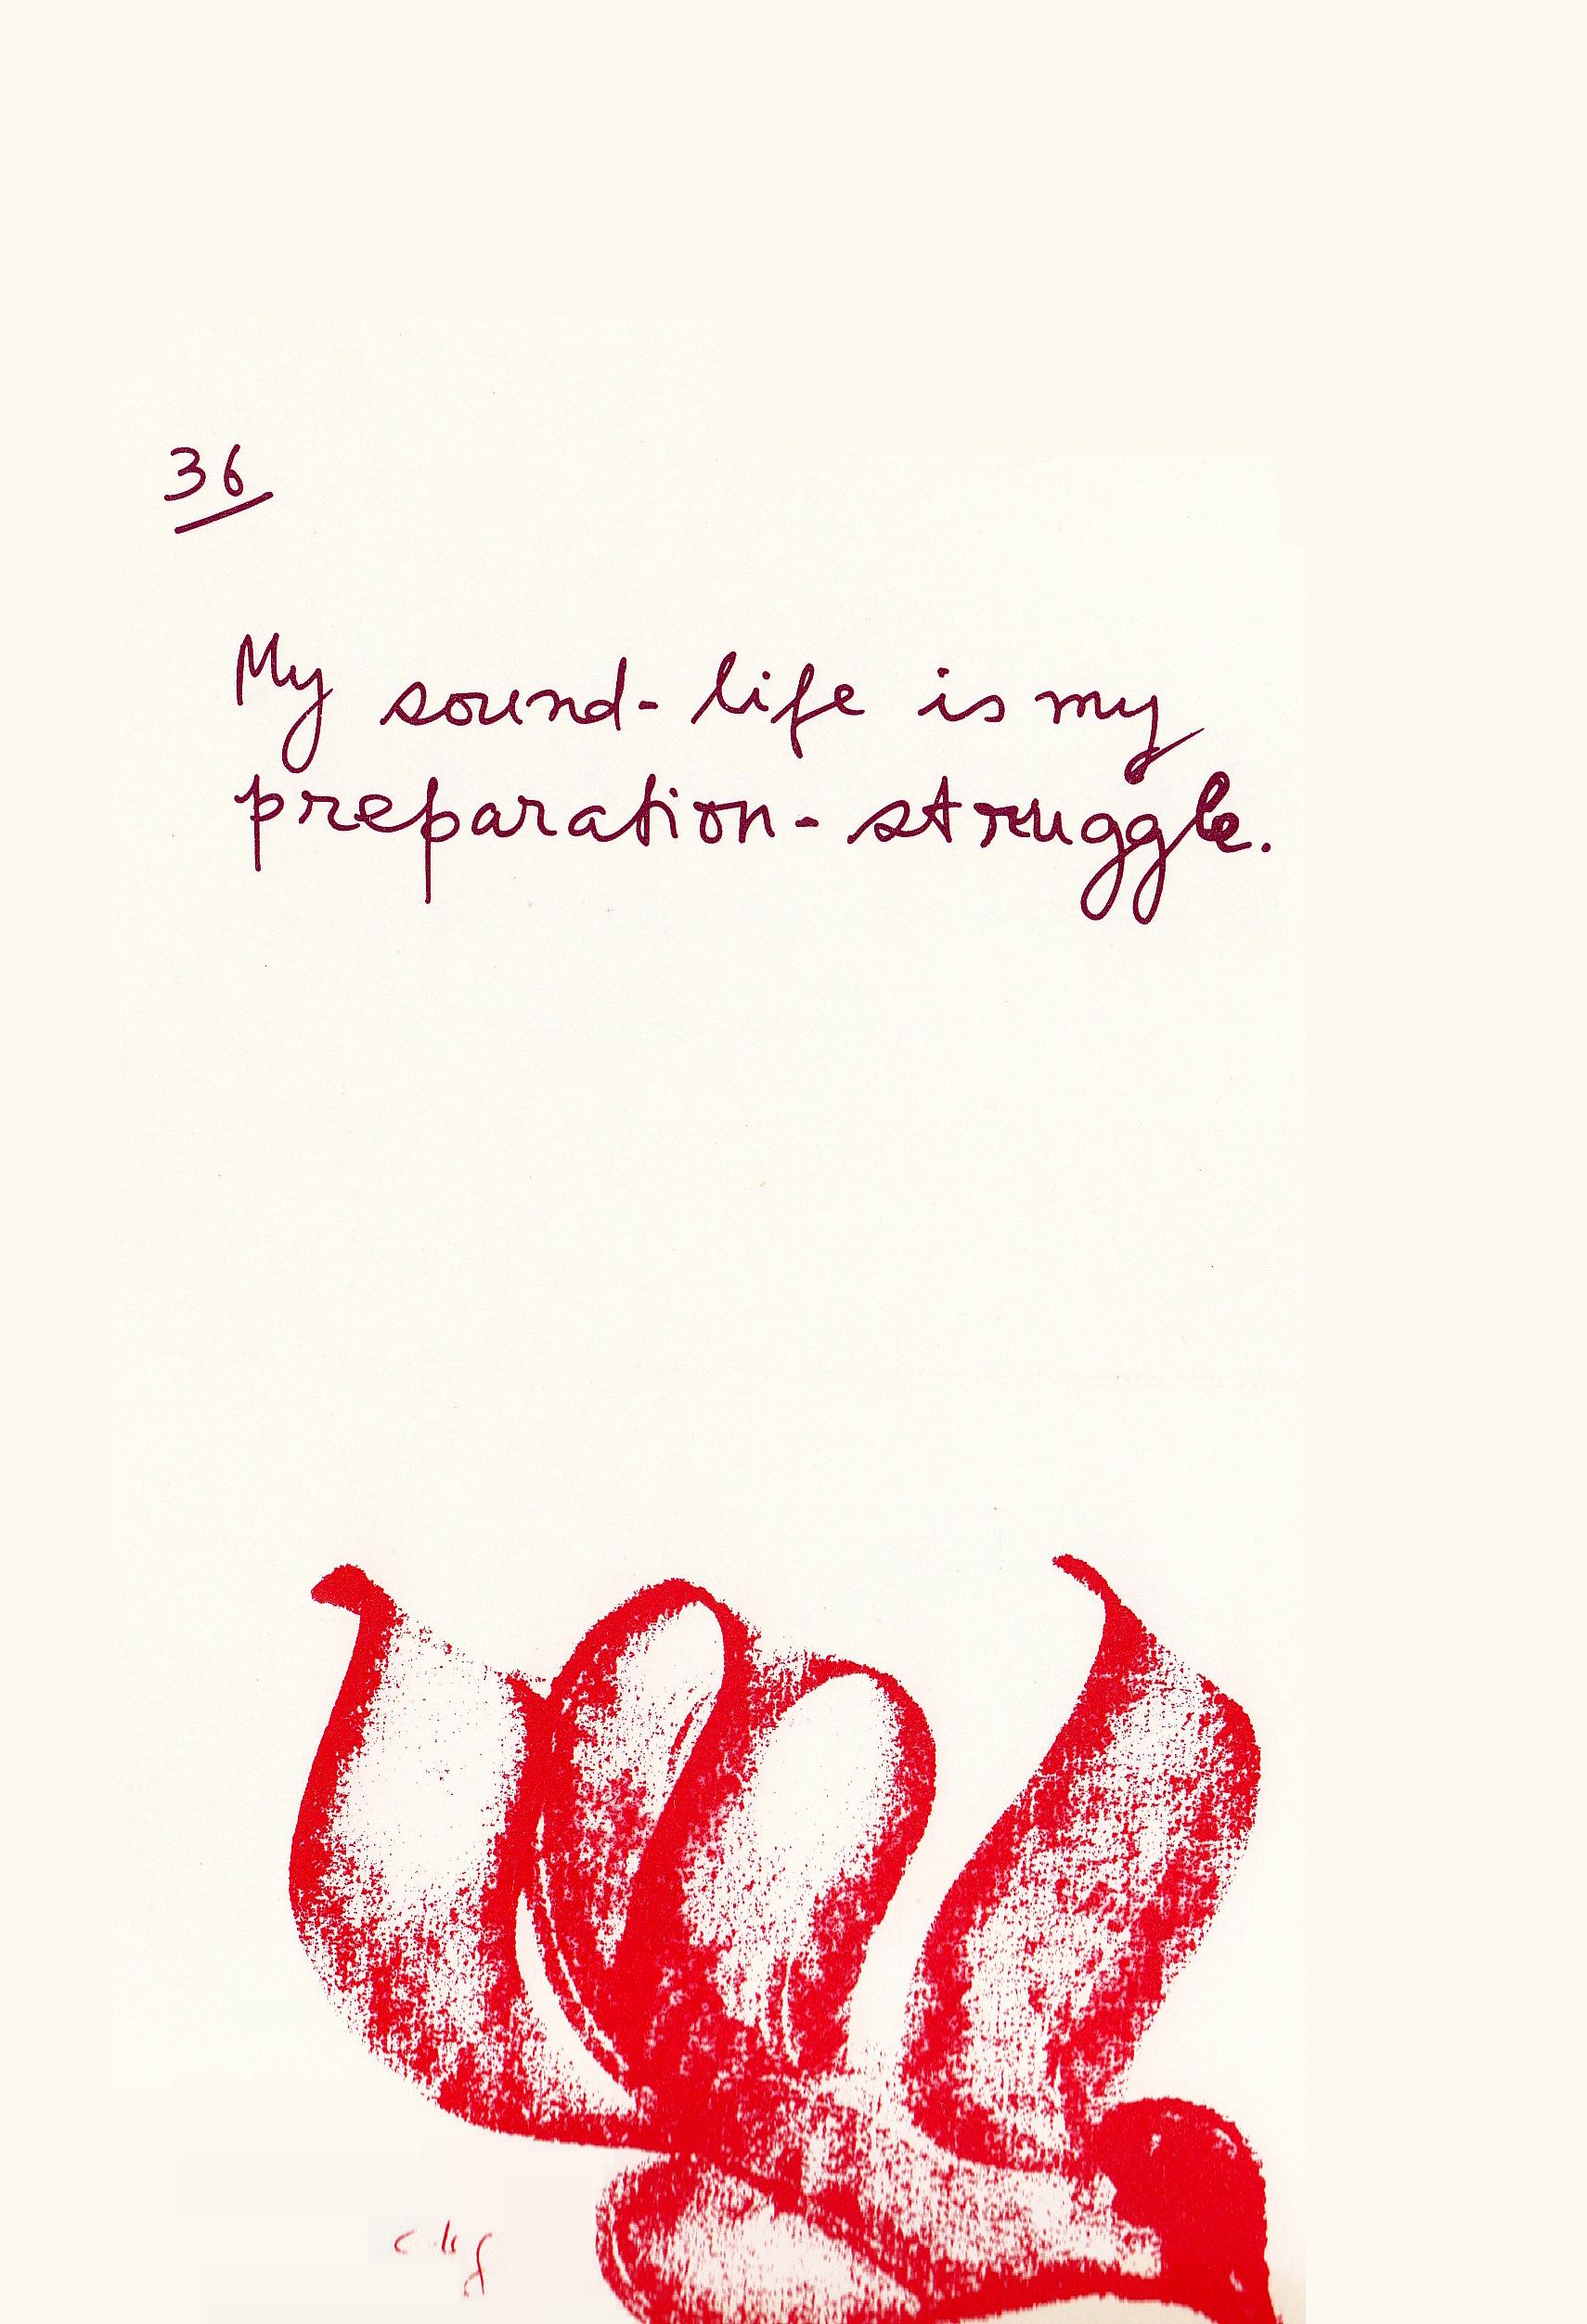 36
My sound-life is my
preparation-struggle.
ckg